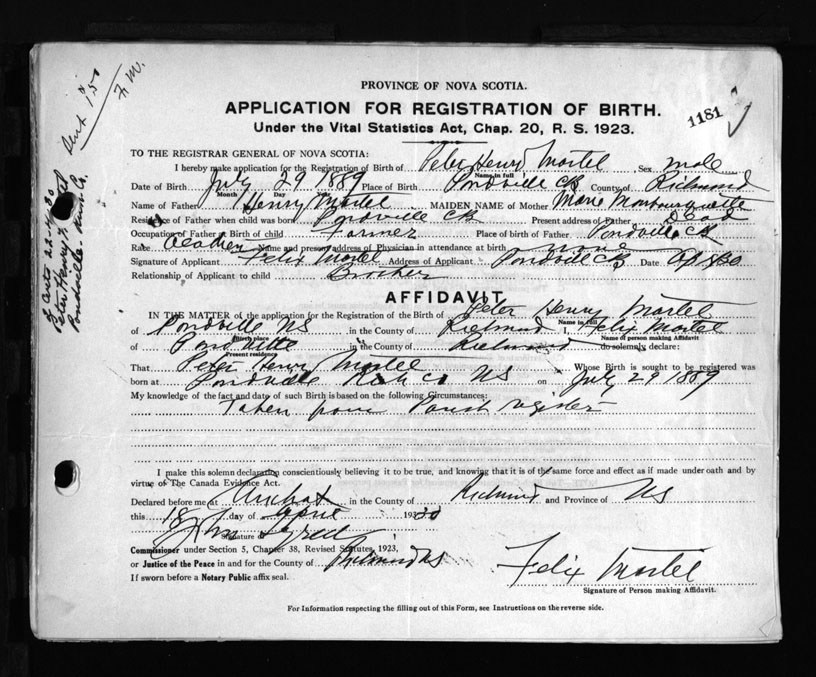 Sent 1.50
F. M.
PROVINCE OF NOVA SCOTIA.
APPLICATION FOR REGISTRATION OF BIRTH.
1181
Under the Vital Statistics Act, Chap. 20, R. S. 1923.
TO THE REGISTRAR GENERAL OF NOVA SCOTIA:
I hereby make application for the Registration of Birth of Peter Henry Martel Sex male
Name in full
Date of Birth July 29 1889 Place of Birth Pondville CB County of Richmond
Month Day
Name of Father Henry Martel MAIDEN NAME of Mother Marie
Residence of Father when child was born Pondville CB Present address of Father Dead
Occupation of Father at Birth of child Farmer Place of birth of Father Pondville CB
Race Name and present address of Physician in attendance at birth none
Signature of Applicant Felix Martel Address of Applicant Pondville CB Date
Relationship of Applicant to child Brother
AFFIDAVIT
IN THE MATTER of the application for the Registration of the Birth of Peter Henry Martel
Name in full
of Pondville NS in the County of Richmond I, Felix Martel
Birth place Name of person making Affidavit
of Pondville in the County of Richmond do solemnly declare:
Present residence
That Peter Henry Martel Whose Birth is sought to be registered was
born at Pondville Rich Co NS on July 29 1889
My knowledge of the fact and date of such Birth is based on the following Circumstances:
Taken from Parish register
I make this solemn declaration conscientiously believing it to be true, and knowing that it is of the same force and effect as if made under oath and by
virtue of The Canada Evidence Act.
Declared before me at Arichat in the County of Richmond and Province of NS
this 18 day of April 1930
Signature of
Commissioner under Section 5, Chapter 38, Revised Statutes, 1923,
or Justice of the Peace in and for the County of Richmond NS
If sworn before a Notary Public affix seal.
Felix Martel
Signature of Person making Affidavit.
For Information respecting the filling out of this Form, see Instructions on the reverse side.